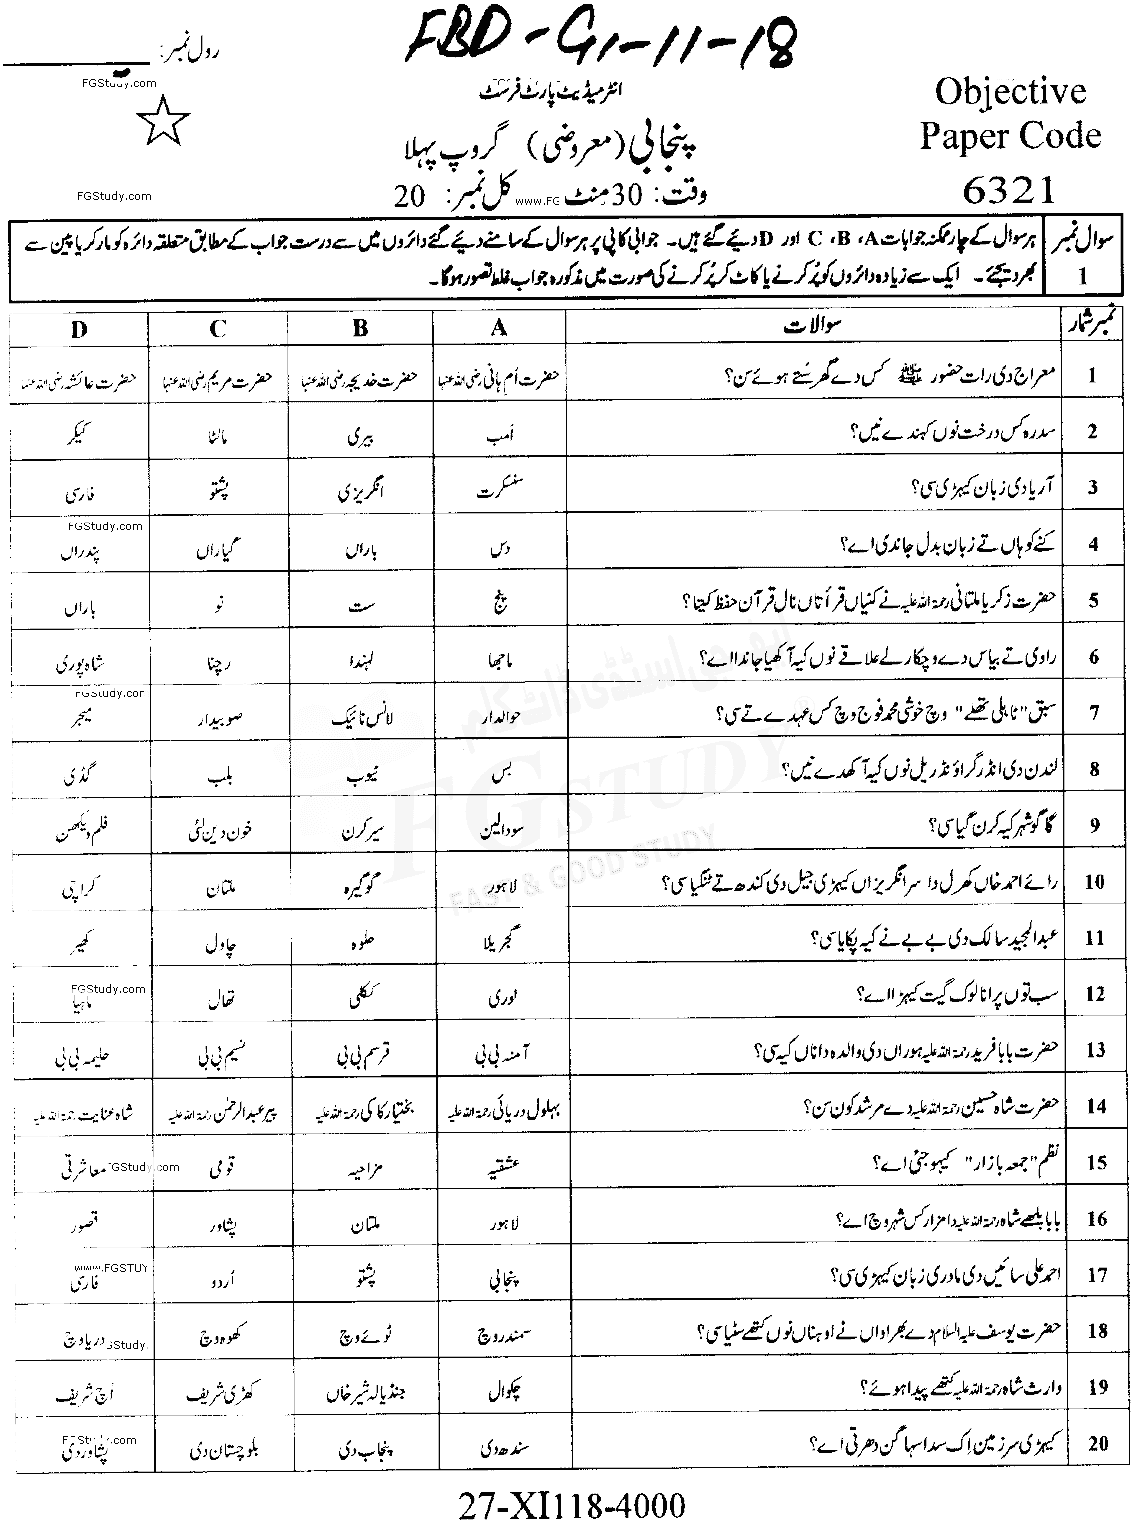 FBD-G1-11-18
رول نمبر: ________
FGStudy.com
انٹرمیڈیٹ پارٹ فرسٹ
Objective
Paper Code
6321
پنجابی (معروضی) گروپ پہلا
FGStudy.com
وقت: 30 منٹ www.FG کل نمبر: 20
سوال نمبر 1
ہر سوال کے چار ممکنہ جوابات A، B، C اور D دیئے گئے ہیں۔ جوابی کاپی پر ہر سوال کے سامنے دیئے گئے دائروں میں سے درست جواب کے مطابق متعلقہ دائرہ کو مارکر یا پین سے
بھر دیجئے۔ ایک سے زیادہ دائروں کو پُر کرنے یا کاٹ کر پُر کرنے کی صورت میں مذکورہ جواب غلط تصور ہوگا۔
نمبر شمار سوالات A B C D
1 معراج دی رات حضور ﷺ کس دے گھر سُتے ہوئے سن؟ حضرت اُم ہانی رضی اللہ عنہا حضرت خدیجہ رضی اللہ عنہا حضرت مریم رضی اللہ عنہا حضرت عائشہ رضی اللہ عنہا
2 سدرہ کس درخت نوں کہندے نیں؟ اَمب بیری مالٹا کیکر
3 آریا دی زبان کیہڑی سی؟ سنسکرت انگریزی پشتو فارسی
FGStudy.com
4 کنے کوہاں تے زبان بدل جاندی اے؟ دس باراں گیاراں پندراں
5 حضرت زکریا ملتانی رحمۃ اللہ علیہ نے کنیاں قرأتاں نال قرآن حفظ کیتا؟ پنج ست نو باراں
6 راوی تے بیاس دے وچکارلے علاقے نوں کیہ آکھیا جاندا اے؟ ماجھا لہندا رچنا شاہ پوری
FGStudy.cor
7 سبق "ٹاہلی تھلے" وچ خوشی محمد فوج وچ کس عہدے تے سی؟ حوالدار لانس نائیک صوبیدار میجر
8 لندن دی انڈر گراؤنڈ ریل نوں کیہ آکھدے نیں؟ بس ٹیوب بلب گڈی
9 گاگو شہر کیہ کرن گیا سی؟ سودا لین سیر کرن خون دین لئی فلم دیکھن
10 رائے احمد خاں کھرل دا سر انگریزاں کیہڑی جیل دی کندھ تے ٹنگیا سی؟ لاہور گوگیرہ ملتان کراچی
11 عبدالمجید سالک دی بے بے نے کیہ پکایا سی؟ گجریلا حلوہ چاول کھیر
FGStudy.com
12 سب توں پرانا لوک گیت کیہڑا اے؟ لوری ککلی تھال ماہیا
13 حضرت بابا فرید رحمۃ اللہ علیہ ہوراں دی والدہ دا ناں کیہ سی؟ آمنہ بی بی قرسم بی بی نسیم بی بی حلیمہ بی بی
14 حضرت شاہ حسین رحمۃ اللہ علیہ دے مرشد کون سن؟ بہلول دریائی رحمۃ اللہ علیہ بختیار کاکی رحمۃ اللہ علیہ پیر عبدالرحمٰن رحمۃ اللہ علیہ شاہ عنایت رحمۃ اللہ علیہ
15 نظم "جمعہ بازار" کیہو جئی اے؟ عشقیہ مزاحیہ قومی معاشرتی FGStudy.com
16 بابا بلھے شاہ رحمۃ اللہ علیہ دا مزار کس شہر وچ اے؟ لاہور ملتان پشاور قصور
www.FGSTUY
17 احمد علی سائیں دی مادری زبان کیہڑی سی؟ پنجابی پشتو اُردو فارسی
18 حضرت یوسف علیہ السلام دے بھراواں نے اوہناں نوں کتھے سٹیا سی؟ سمندر وچ ٹوئے وچ کھوہ وچ دریا وچ GStudy.
19 وارث شاہ رحمۃ اللہ علیہ کتھے پیدا ہوئے؟ چکوال جنڈیالہ شیر خاں کھڑی شریف اُچ شریف
FGStudy.com
20 کیہڑی سرزمین اِک سدا سہاگن دھرتی اے؟ سندھ دی پنجاب دی بلوچستان دی پشاور دی
ایف جی اسٹڈی ڈاٹ کام
FGSTUDY
FAST & GOOD STUDY
27-XI118-4000